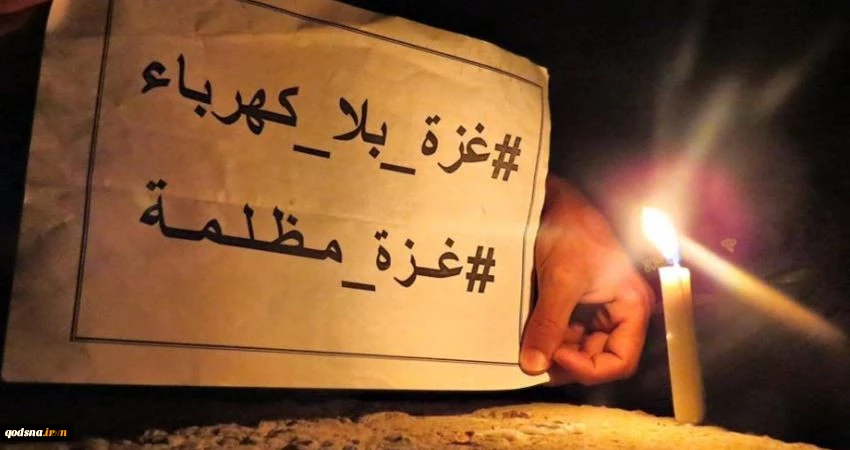 #غزة_بلا_كهرباء
#غزة_مظلمة
qodsna.ir